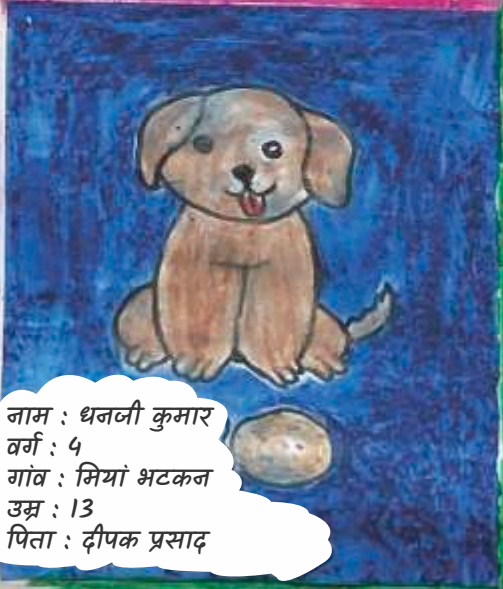 नाम : धनजी कुमार
वर्ग : 4
गांव : मियां भटकन
उम्र : 13
पिता : दीपक प्रसाद